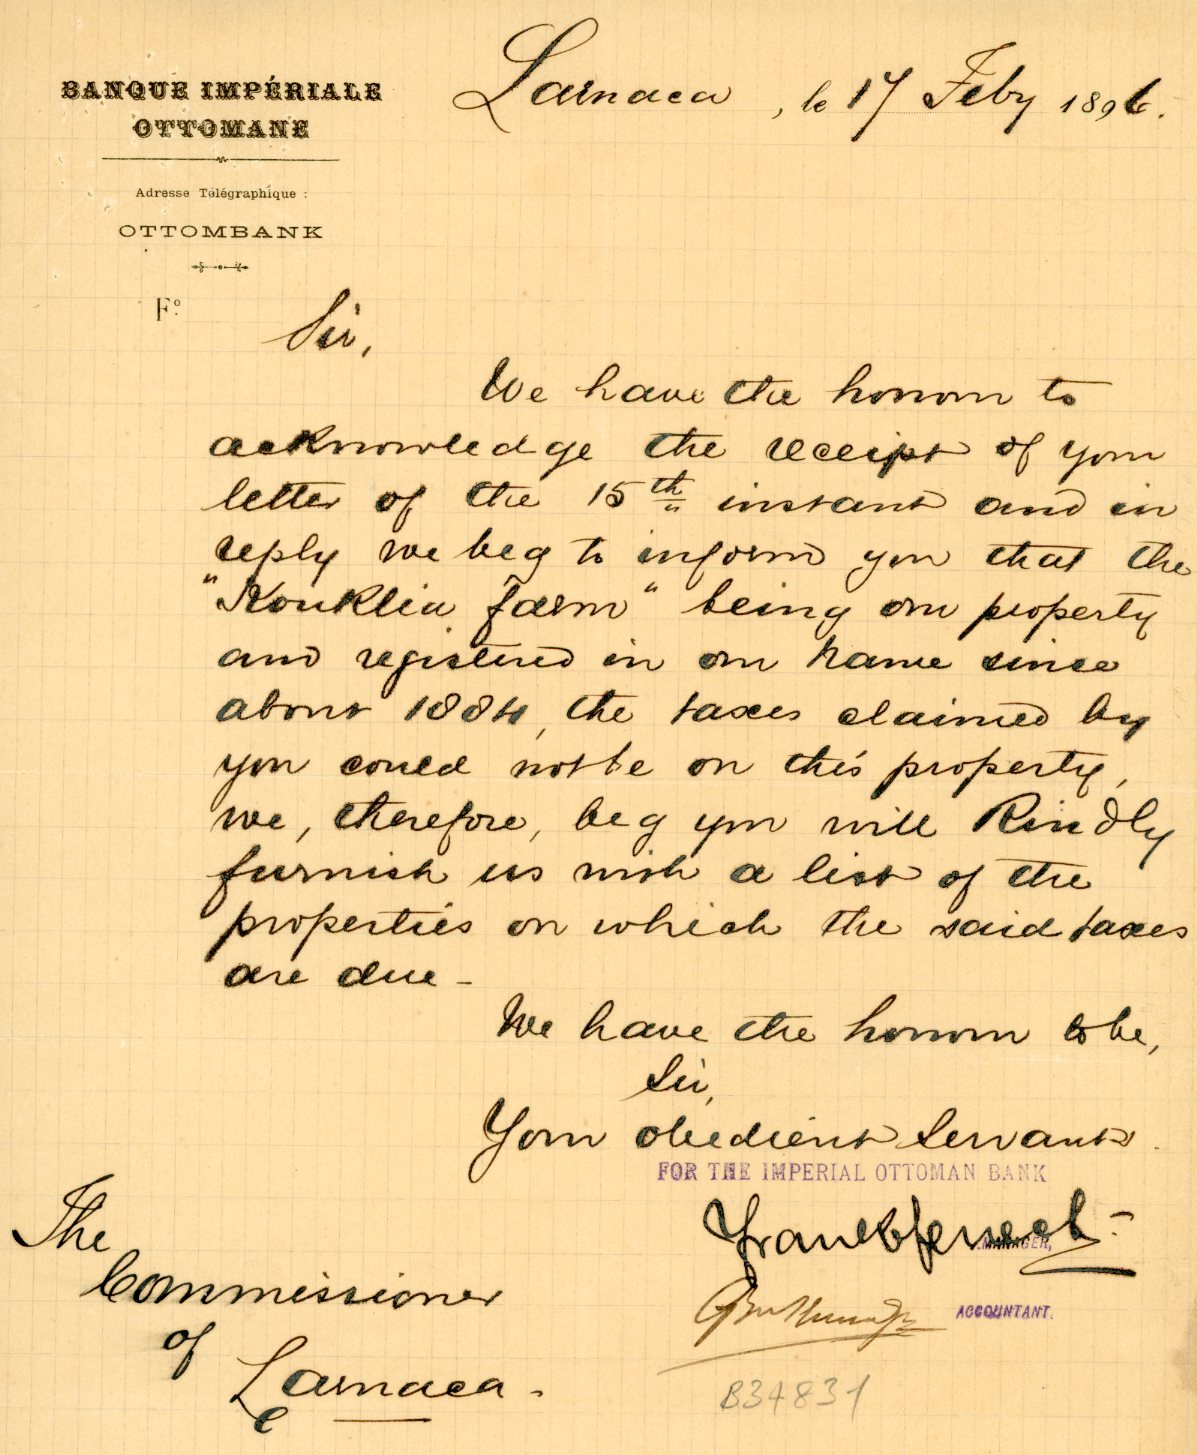 BANQUE IMPÉRIALE
OTTOMANE
Adresse Télégraphique :
OTTOMBANK
Fº
Larnaca, le 17 Feby 1896.
Sir,
We have the honour to
acknowledge the receipt of your
letter of the 15th instant and in
reply we beg to inform you that the
"Kouklia farm" being our property
and registered in our name since
about 1884, the taxes claimed by
you could not be on this property,
we, therefore, beg you will kindly
furnish us with a list of the
properties on which the said taxes
are due -
We have the honour to be,
Sir,
Your obedient Servants
FOR THE IMPERIAL OTTOMAN BANK
MANAGER,
ACCOUNTANT.
The
Commissioner
of
Larnaca.
B34831